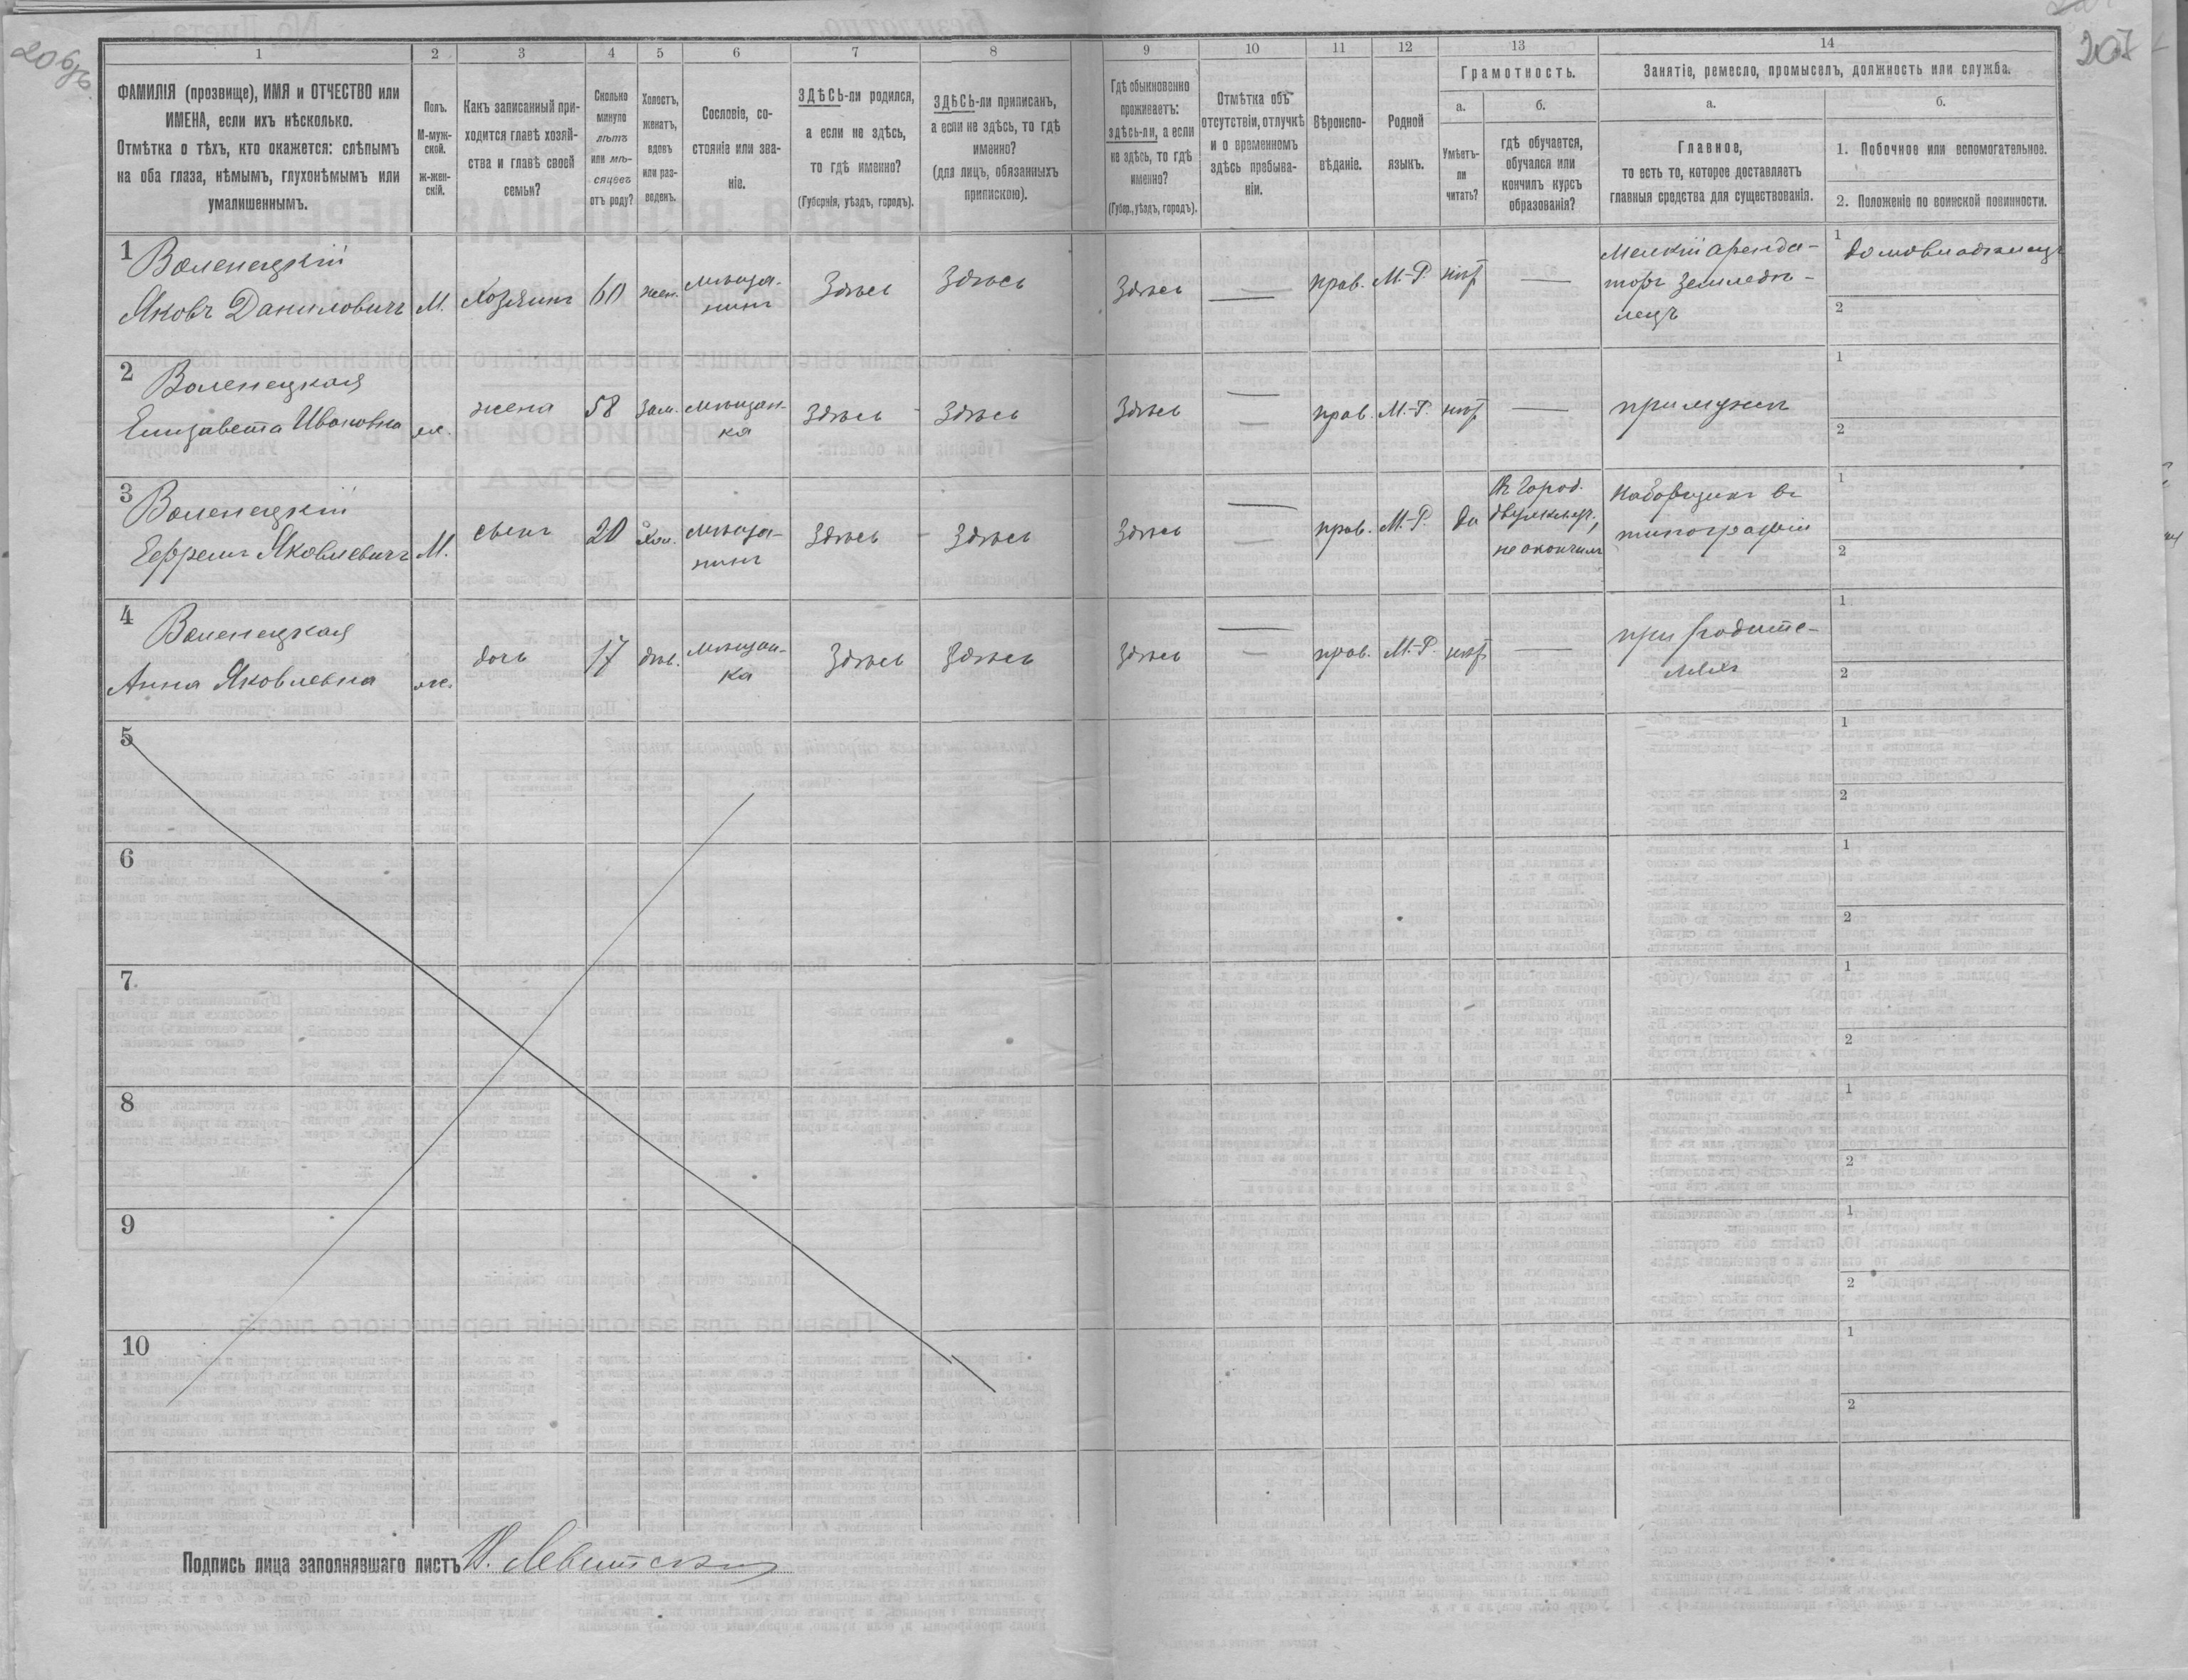 206 об.
207
1
2
3
4
5
6
7
8
9
10
11
12
13
14
ФАМИЛІЯ (прозвище), ИМЯ и ОТЧЕСТВО или
ИМЕНА, если ихъ нѣсколько.
Отмѣтка о тѣхъ, кто окажется: слѣпымъ
на оба глаза, нѣмымъ, глухонѣмымъ или
умалишеннымъ.
Полъ.
М-муж-
ской.
ж-жен-
скій.
Какъ записанный при-
ходится главѣ хозяй-
ства и главѣ своей
семьи?
Сколько
минуло
лѣтъ
или мѣ-
сяцевъ
отъ роду?
Холостъ,
женатъ,
вдовъ
или раз-
веденъ.
Сословіе, со-
стояніе или зва-
ніе.
ЗДѢСЬ-ли родился,
а если не здѣсь,
то гдѣ именно?
(Губернія, уѣздъ, городъ).
ЗДѢСЬ-ли приписанъ,
а если не здѣсь, то гдѣ
именно?
(для лицъ, обязанныхъ
припискою).
Гдѣ обыкновенно
проживаетъ:
здѣсь-ли, а если
не здѣсь, то гдѣ
именно?
(Губер., уѣздъ, городъ).
Отмѣтка объ
отсутствіи, отлучкѣ
и о временномъ
здѣсь пребыва-
ніи.
Вѣроиспо-
вѣданіе.
Родной
языкъ.
Грамотность.
а.
Умѣетъ-
ли
читать?
б.
гдѣ обучается,
обучался или
кончилъ курсъ
образованія?
Занятіе, ремесло, промыселъ, должность или служба.
а.
Главное,
то есть то, которое доставляетъ
главныя средства для существованія.
б.
1. Побочное или вспомогательное.
2. Положеніе по воинской повинности.
1
Воленецкій
Яковъ Даниловичъ
М.
Хозяинъ
60
жен.
мѣща-
нинъ
Здѣсь
Здѣсь
Здѣсь
—
прав.
М.-Р.
нѣт
—
Мелкій аренда-
торъ земледѣ-
лецъ
1
домовладѣлецъ
2
2
Воленецкая
Елизавета Ивановна
ж.
жена
58
Зам.
мѣщан-
ка
Здѣсь
Здѣсь
Здѣсь
—
—
прав.
М.-Р.
нѣт
—
при мужѣ
1
2
3
Воленецкій
Ефремъ Яковлевичъ
М.
сынъ
20
Хол.
мѣща-
нинъ
Здѣсь
Здѣсь
Здѣсь
—
—
прав.
М.-Р.
да
въ Город.
двухклас.,
не окончилъ
наборщикъ въ
типографіи
1
2
4
Воленецкая
Анна Яковлевна
ж.
дочь
17
дѣв.
мѣщан-
ка
Здѣсь
Здѣсь
Здѣсь
—
—
прав.
М.-Р.
нѣт
—
при родите-
ляхъ
1
2
5
1
2
6
1
2
7
1
2
8
1
2
9
1
2
10
1
2
Подпись лица заполнявшаго листъ